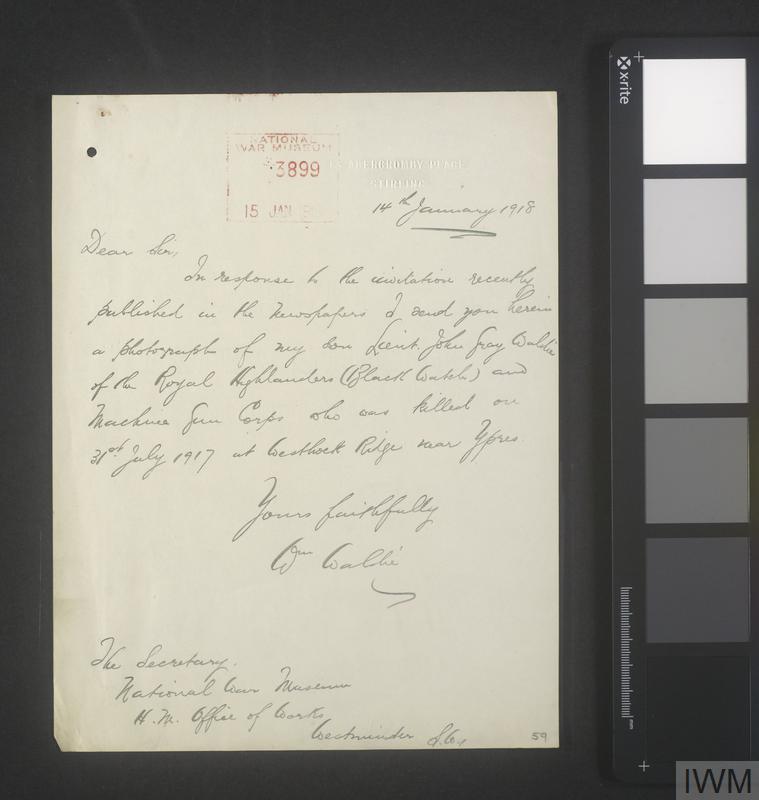 NATIONAL
WAR MUSEUM
3899
15 JAN
ABERCROMBY PLACE
STIRLING
14th January 1918
Dear Sir,
In response to the invitation recently
published in the newspapers I send you herein
a photograph of my son Lieut. John Gray Waldie
of the Royal Highlanders (Black Watch) and
Machine Gun Corps who was killed on
31st July 1917 at Westhoek Ridge near Ypres.
Yours faithfully
Wm Waldie
The Secretary.
National War Museum
H.M. Office of Works
Westminster S.W.1
59
x-rite
mm
IWM